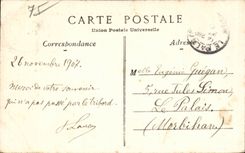 75
CARTE POSTALE
Union Postale Universelle
Correspondance
Adresse
26 novembre 1907
Merci de votre souvenir
qui n'a pas passé par le tribord.
Melle Eugénie Guégan
7 rue Jules Simon
Le Palais
(Morbihan)